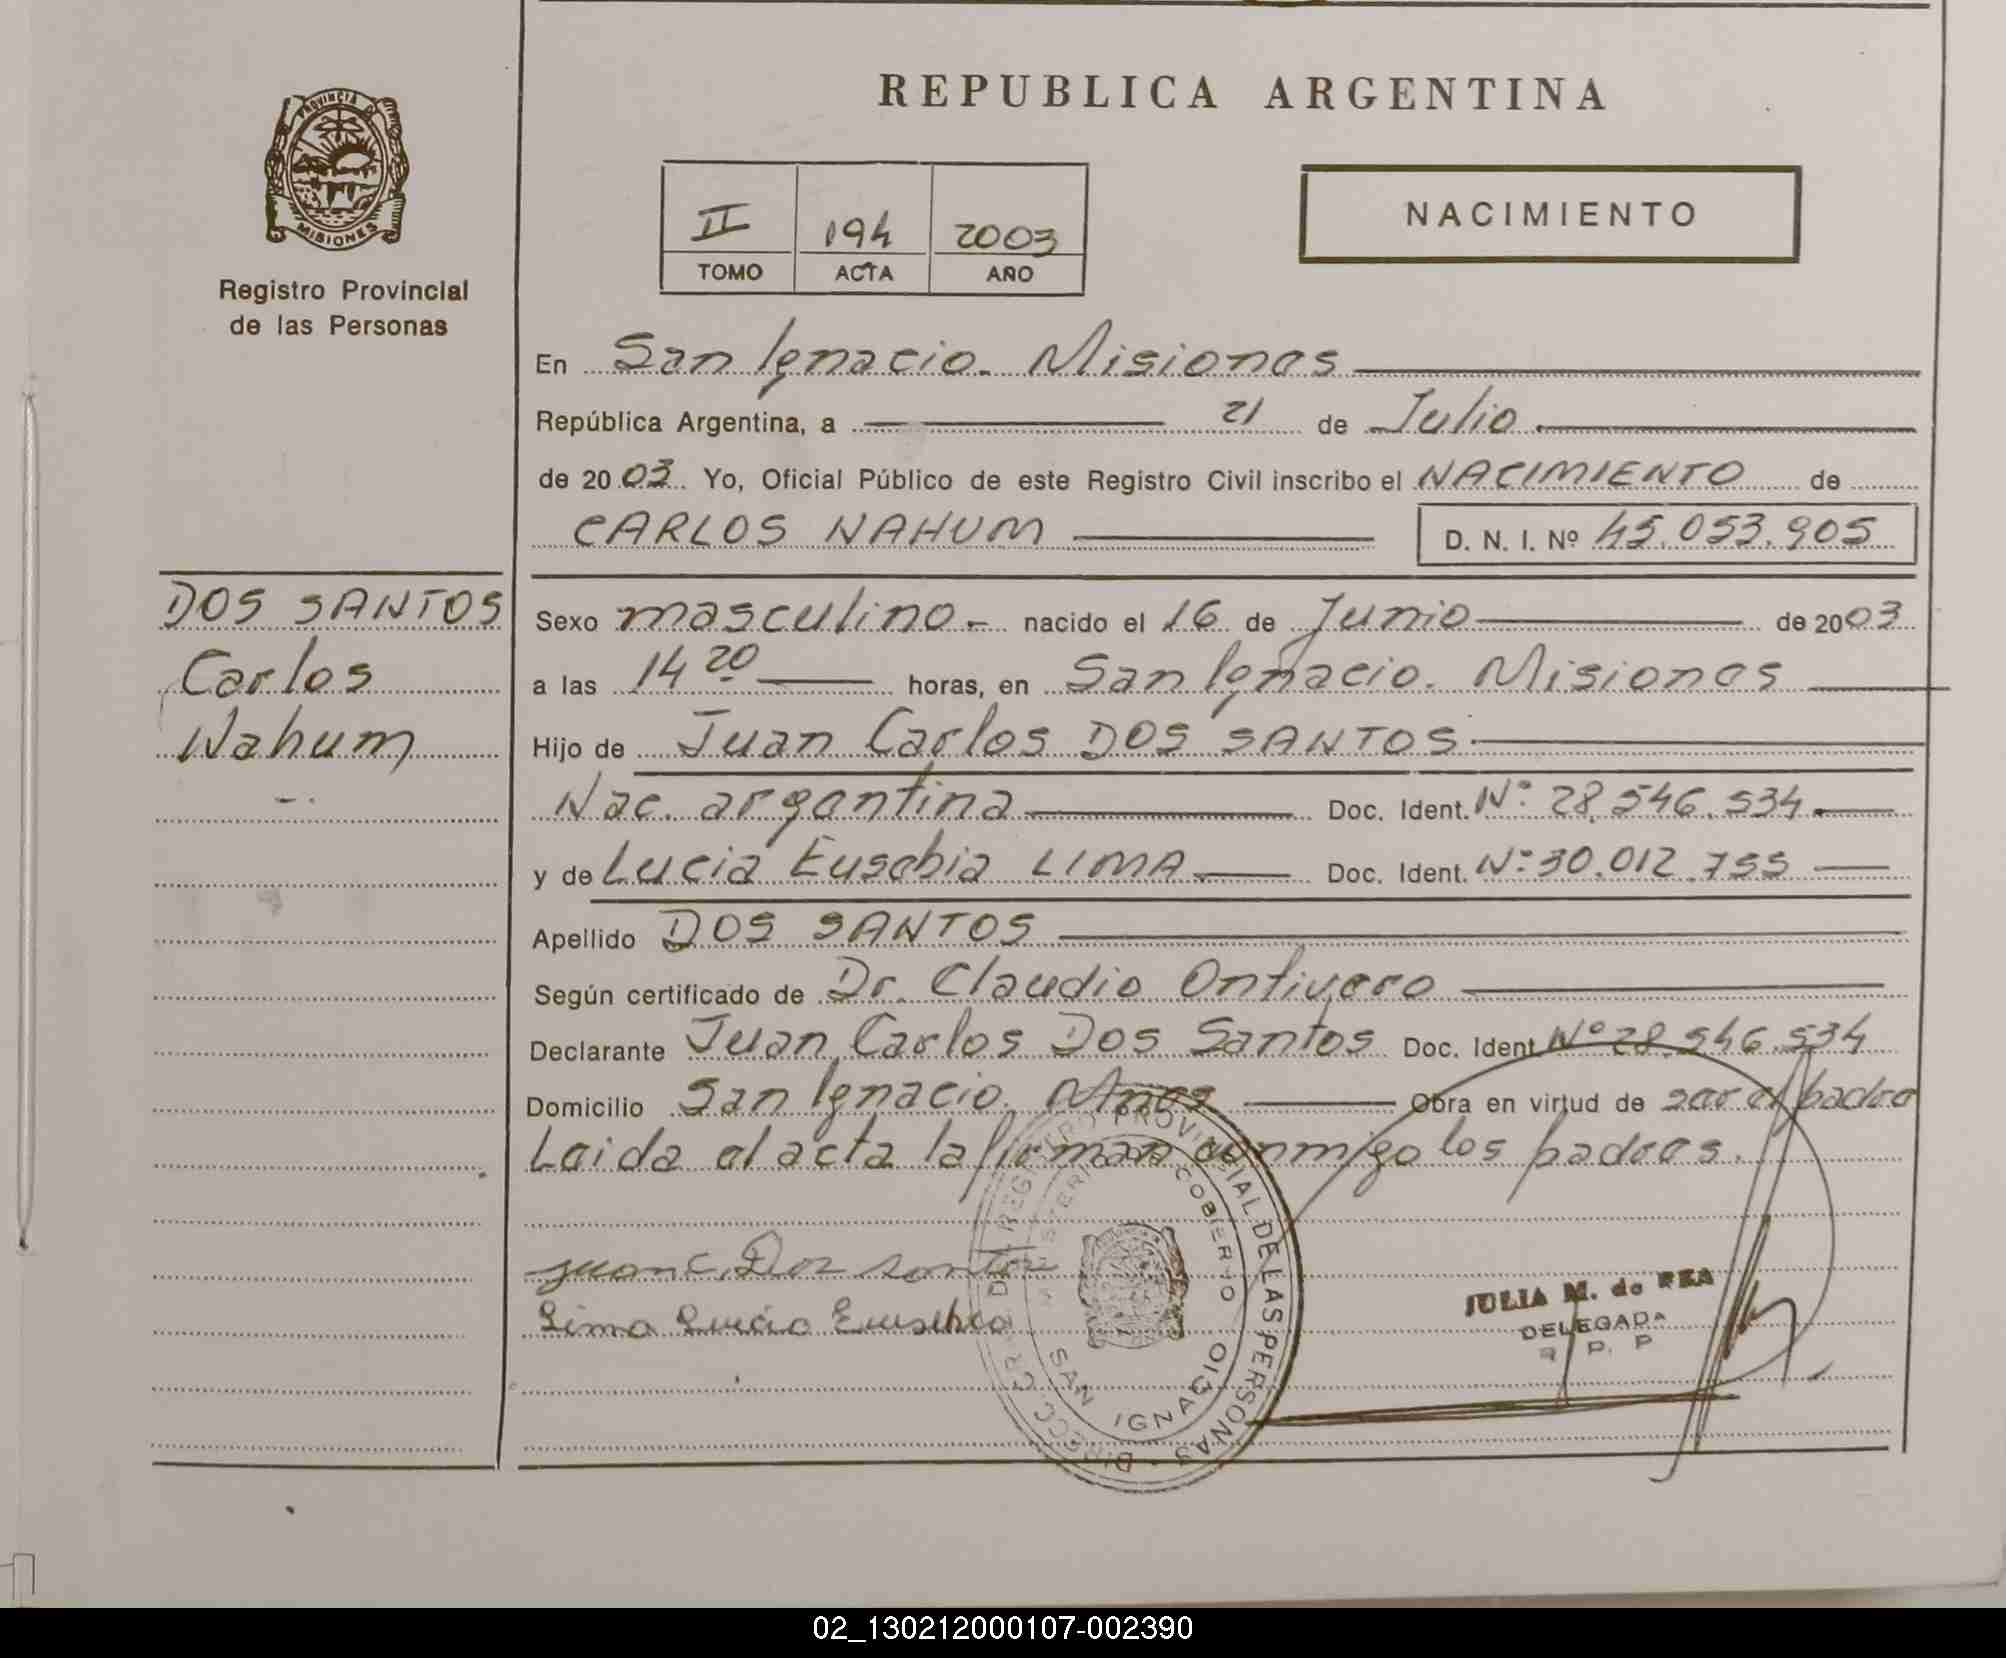 PROVINCIA DE
MISIONES
Registro Provincial
de las Personas
DOS SANTOS
Carlos
Nahum
REPUBLICA ARGENTINA
II 194 2003
TOMO ACTA AÑO
NACIMIENTO
En San Ignacio. Misiones
República Argentina, a 21 de Julio
de 2003 Yo, Oficial Público de este Registro Civil inscribo el NACIMIENTO de
CARLOS NAHUM D. N. I. Nº 45.053.905
Sexo masculino.- nacido el 16 de Junio de 2003
a las 14 20 horas, en San Ignacio. Misiones
Hijo de Juan Carlos DOS SANTOS
Nac. argentina Doc. Ident. Nº: 28.546.534
y de Lucia Eusebia LIMA Doc. Ident. Nº: 30.012.755
Apellido DOS SANTOS
Según certificado de Dr. Claudio Ontivero
Declarante Juan Carlos Dos Santos Doc. Ident Nº 28.546.534
Domicilio San Ignacio. Mnes Obra en virtud de ser el padre
Leida el acta la firman conmigo los padres.
Juan C. Dos santos
Lima Lucia Eusebia
DIRECC. GRAL. DEL REGISTRO PROVINCIAL DE LAS PERSONAS
MINISTERIO DE GOBIERNO
SAN IGNACIO
JULIA M. de REA
DELEGADA
R. P. P
02_130212000107-002390